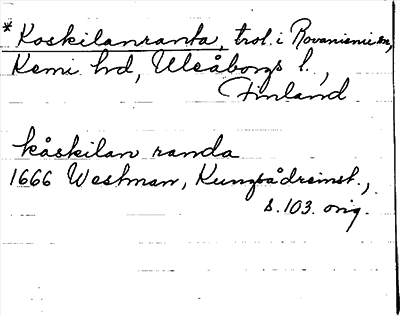 * Koskilanranta, trol. i Rovaniemi sn,
Kemi hd, Uleåborgs l.,
Finland
kåskilan randa
1666 Westman, Kungsådreinst.,
s. 103. orig.